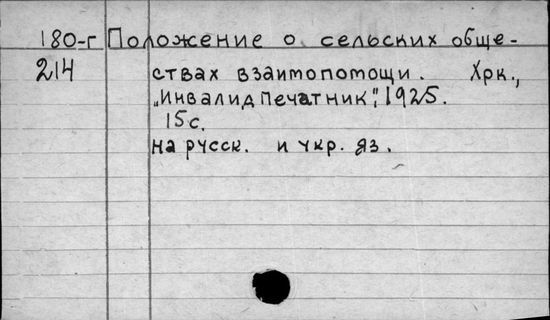 180-г Положение о сельских обще-
214 ствах взаимопомощи. Хрк.,
„Инвалид Печатник", 1925.
15 с.
на русск. и укр. яз.